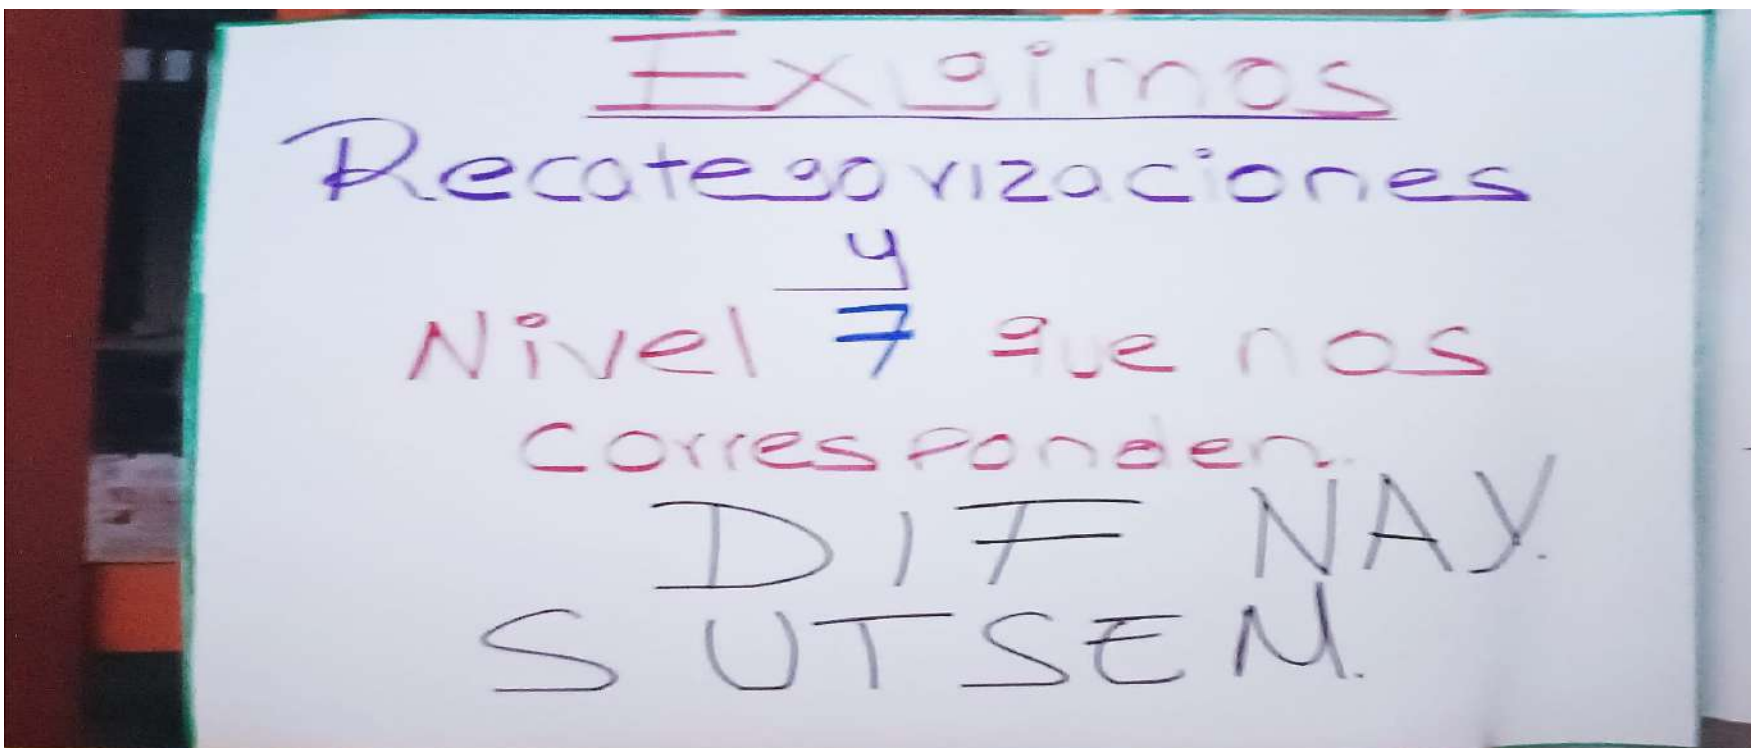 Exigimos
Recategorizaciones
y
Nivel 7 que nos
corresponden.
DIF NAY.
SUTSEM.